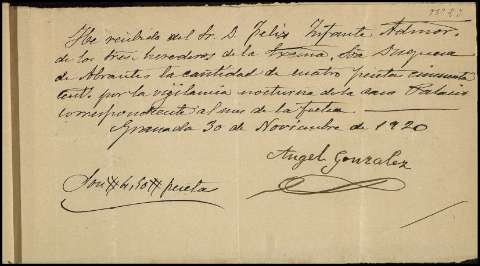 He recibido del Sr. D. Felix Infante Admor.
de los tres herederos de la Excma. Sra Duquesa
de Abrantes la cantidad de cuatro pesetas cincuenta
cent.s por la vigilancia nocturna de la casa Palacio
correspondiente al mes de la fecha.
Granada 30 de Noviembre de 1920
Angel Gonzalez
Son # 4,50 # peseta